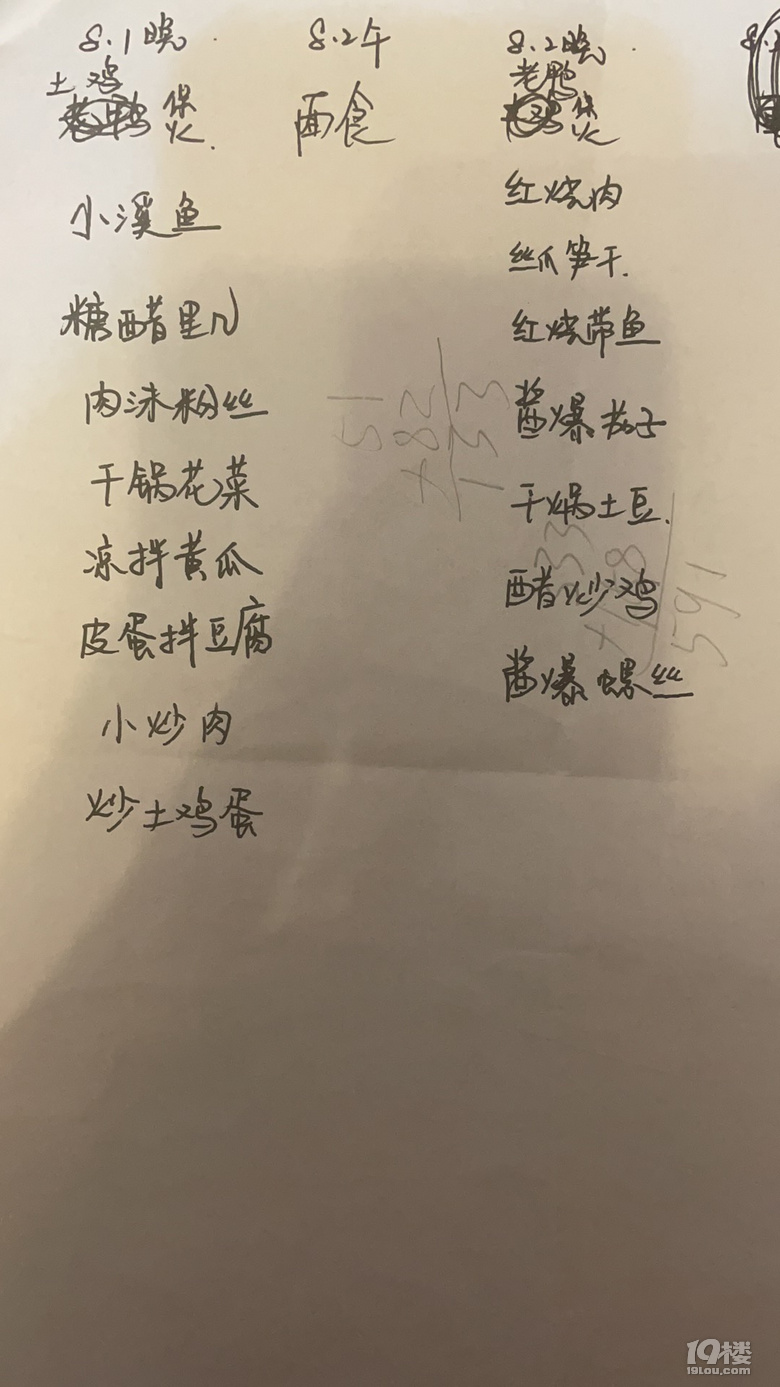 8.1晚
土鸡
煲
小溪鱼
糖醋里几
肉沫粉丝
干锅花菜
凉拌黄瓜
皮蛋拌豆腐
小炒肉
炒土鸡蛋
8.2午
面食
8.2晚
老鸭
煲
红烧肉
丝瓜笋干.
红烧带鱼
酱爆茄子
干锅土豆.
醋炒鸡
酱爆螺丝
51
+82
133
591
19楼
19lou.com